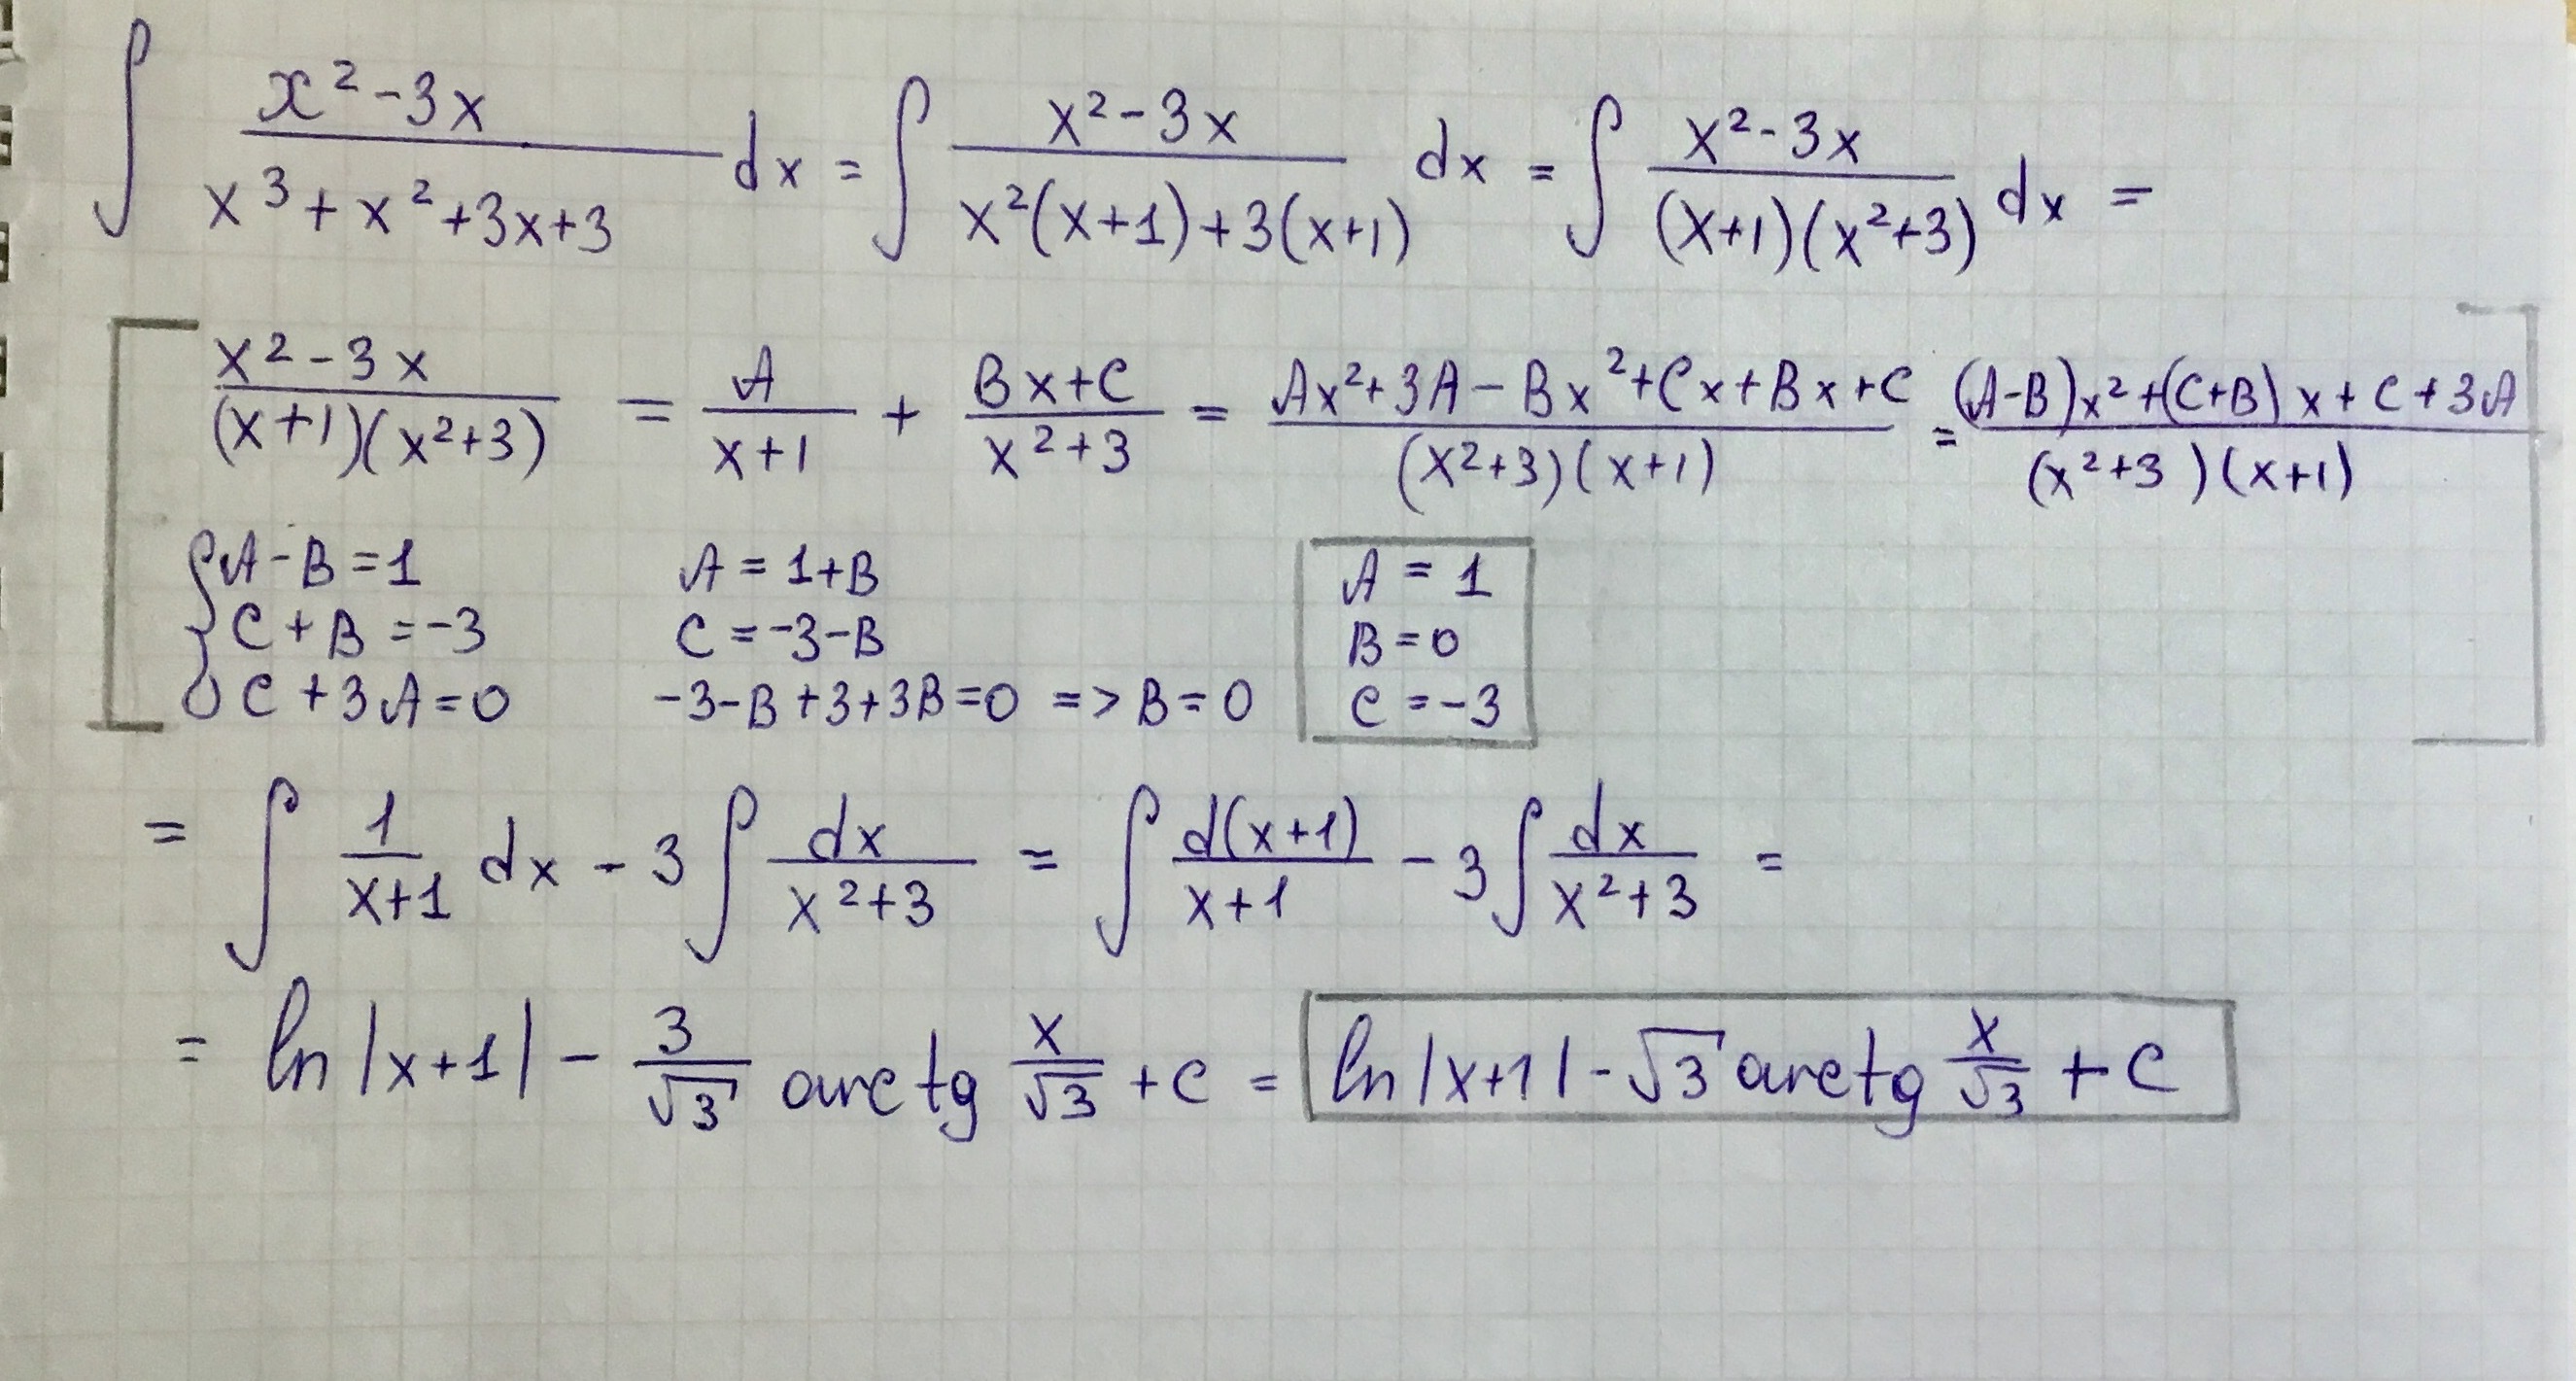 ∫ (x² - 3x)/(x³ + x² + 3x + 3) dx = ∫ (x² - 3x)/(x²(x+1) + 3(x+1)) dx = ∫ (x² - 3x)/((x+1)(x²+3)) dx =
(x² - 3x)/((x+1)(x²+3)) = A/(x+1) + (Bx+C)/(x²+3) = (Ax² + 3A - Bx² + Cx + Bx + C)/((x²+3)(x+1)) = ((A-B)x² + (C+B)x + C + 3A)/((x²+3)(x+1))
{ A - B = 1 A = 1+B A = 1
C + B = -3 C = -3-B B = 0
C + 3A = 0 -3-B+3+3B=0 => B = 0 C = -3
= ∫ 1/(x+1) dx - 3 ∫ dx/(x²+3) = ∫ d(x+1)/(x+1) - 3 ∫ dx/(x²+3) =
= ln |x+1| - 3/√3 arctg x/√3 + C = ln |x+1| - √3 arctg x/√3 + C